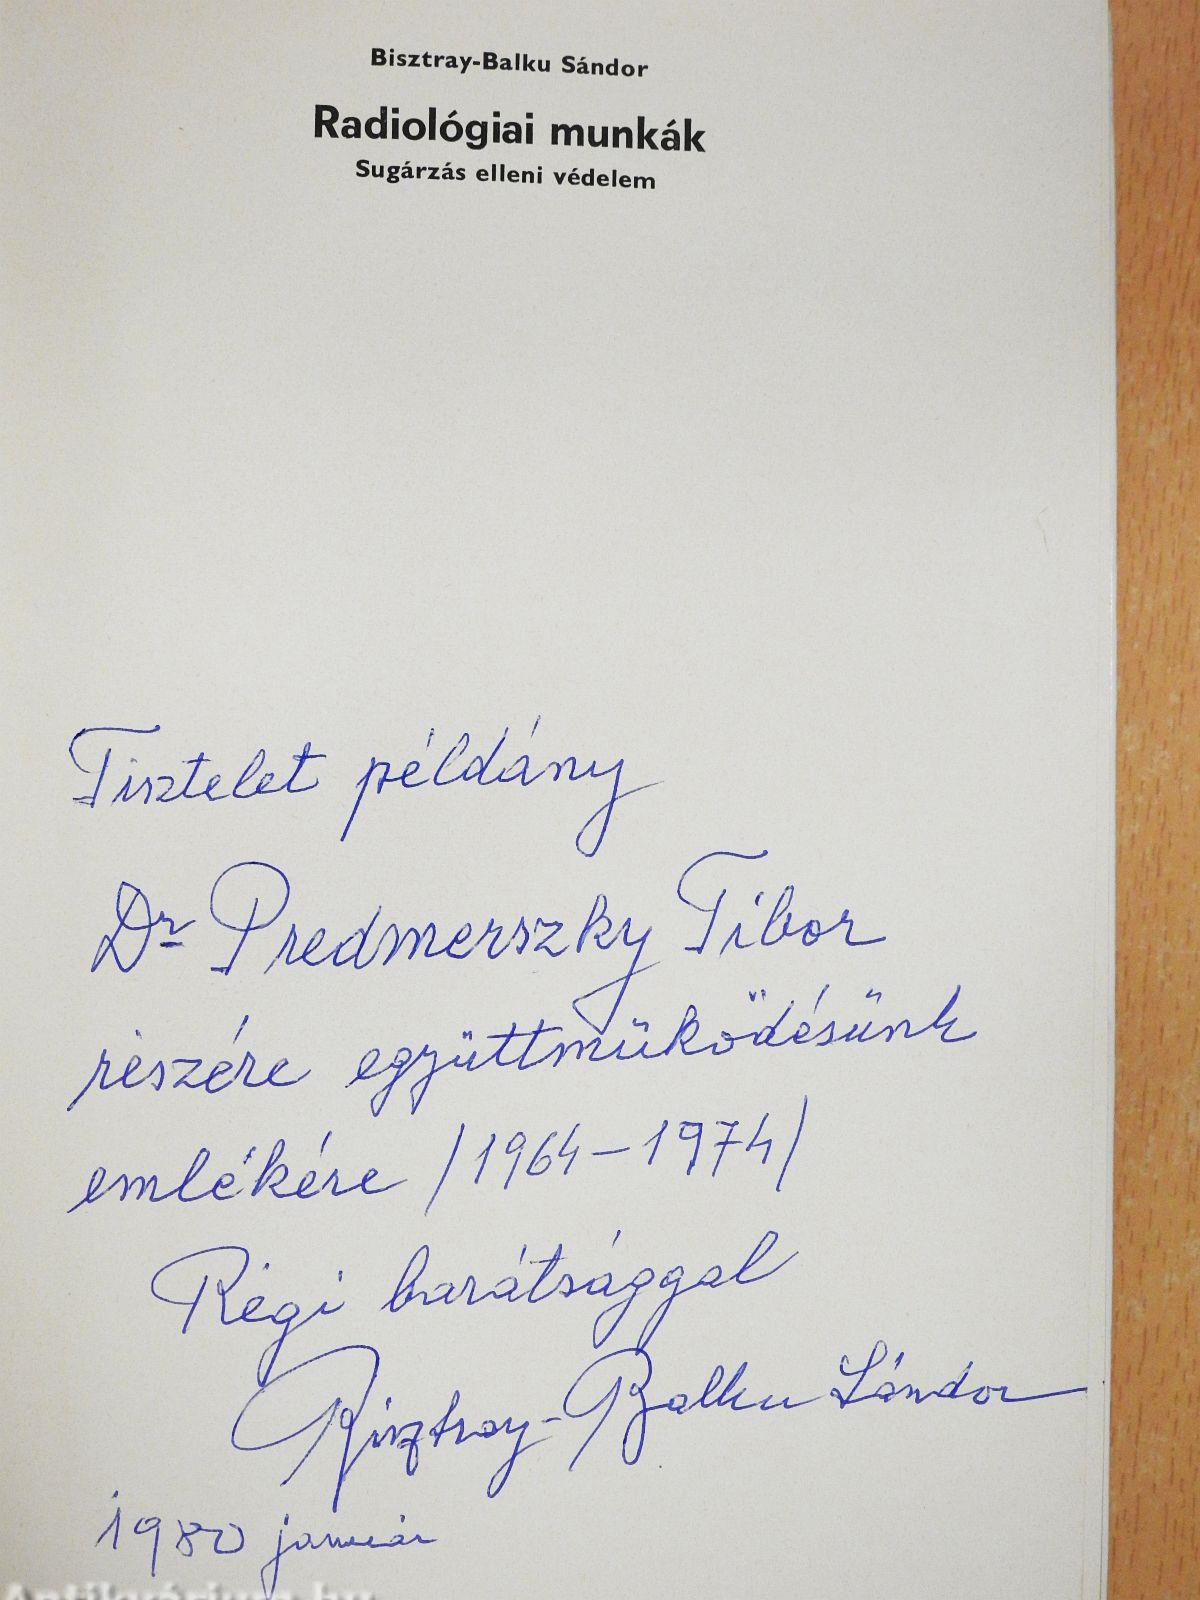 Bisztray-Balku Sándor
Radiológiai munkák
Sugárzás elleni védelem
Tisztelet példány
Dr Predmerszky Tibor
részére együttműködésünk
emlékére /1964-1974/
Régi barátsággal
Bisztray-Balku Sándor
1980 január
Antikvárium.hu